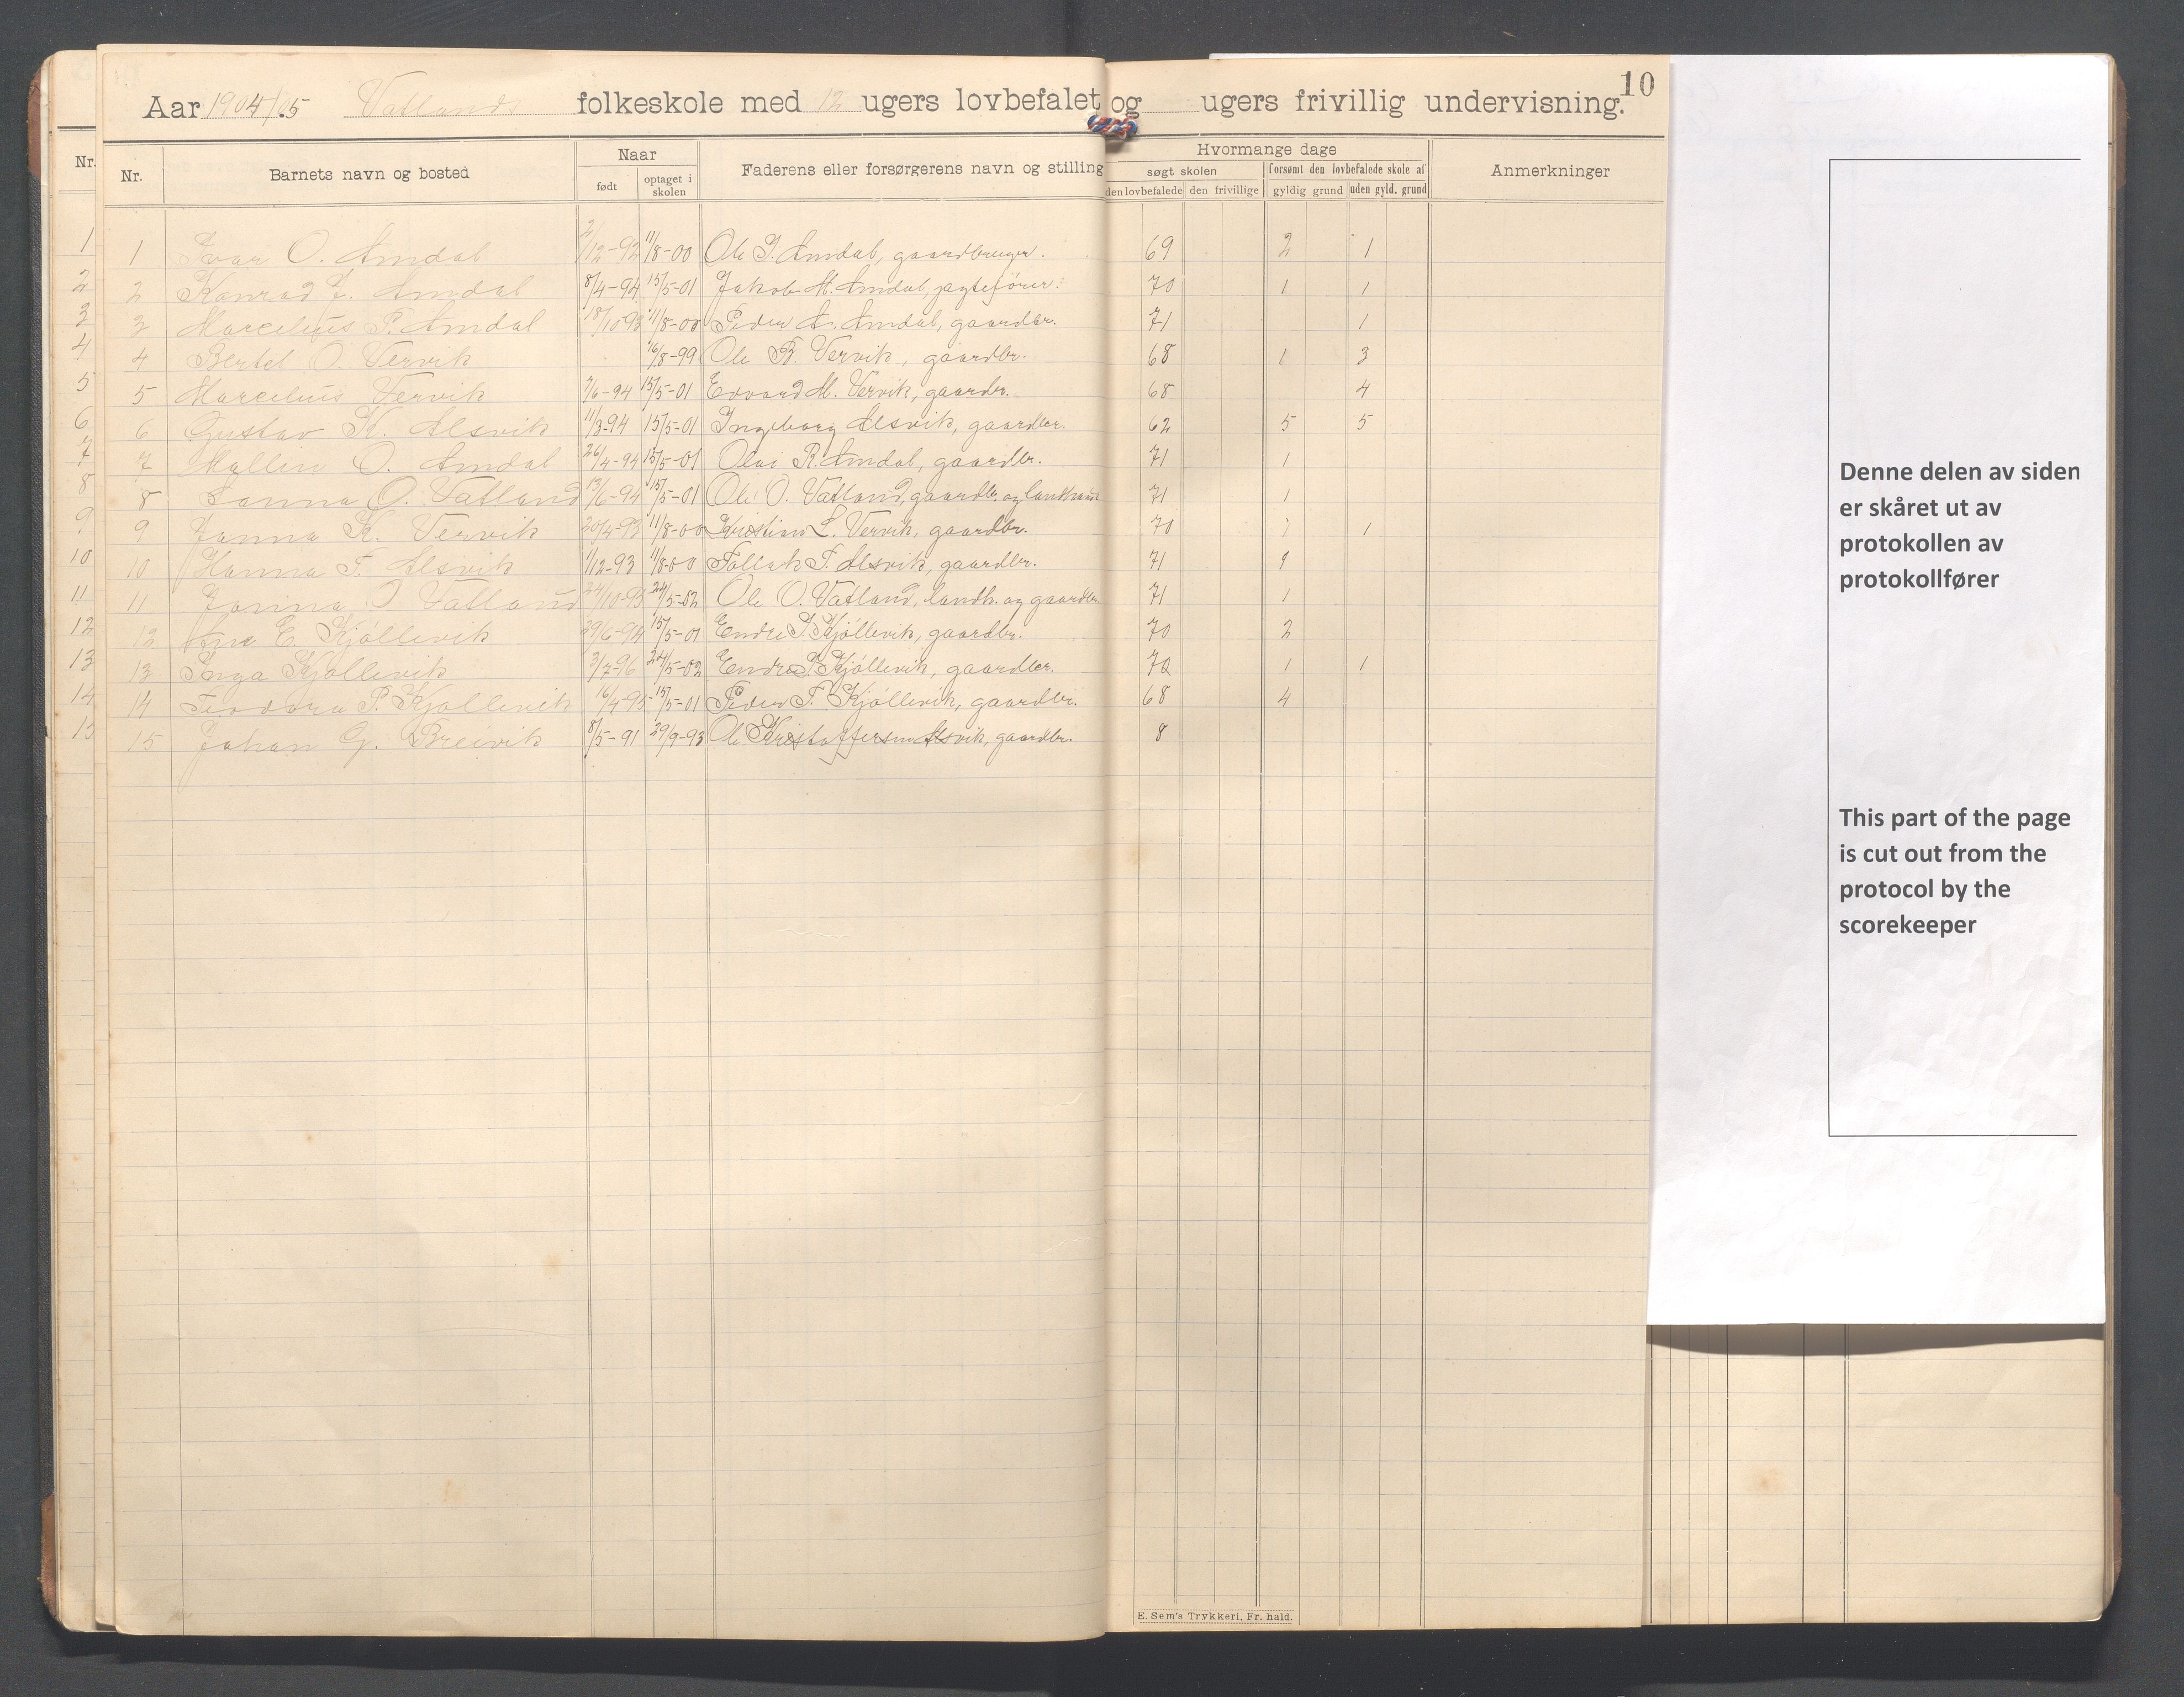 10
Aar 1904/05 Vatlands folkeskole med 12 ugers lovbefalet og ugers frivillig undervisning.
Nr.
Nr. Barnets navn og bosted Naar Faderens eller forsørgerens navn og stilling Hvormange dage Anmerkninger
født optaget i skolen søgt skolen forsømt den lovbefalede skole af
den lovbefalede den frivillige gyldig grund uden gyld. grund
1 1 Ivar O. Amdal 2/12-92 11/8-00 Ole I. Amdal, gaardbruger. 69 2 1
2 2 Konrad J. Amdal 8/4-94 15/5-01 Jakob M. Amdal, jagtefører. 70 1 1
3 3 Marcelius P. Amdal 18/10-93 11/8-00 Peder A. Amdal, gaardbr. 71 1
4 4 Bertel O. Vervik 16/8-99 Ole B. Vervik, gaardbr. 68 1 3
5 5 Marcelius Vervik 7/6-94 15/5-01 Edvard M. Vervik, gaardbr. 68 4
6 6 Gustav K. Alsvik 11/3-94 15/5-01 Ingeborg Alsvik, gaardbr. 62 5 5
7 7 Mallin O. Amdal 26/4-94 15/5-01 Olai R. Amdal, gaardbr. 71 1
8 8 Sanna O. Vatland 13/6-94 15/5-01 Ole O. Vatland, gaardbr. og landhand. 71 1
9 9 Janna K. Vervik 20/4-93 11/8-00 Kristian L. Vervik, gaardbr. 70 1 1
10 10 Hanna F. Alsvik 1/12-93 11/8-00 Follak F. Alsvik, gaardbr. 71 9
11 11 Janina O. Vatland 24/10-95 24/5-02 Ole O. Vatland, landh. og gaardbr. 71 1
12 12 Ane E. Kjøllevik 29/6-94 15/5-01 Endre P. Kjøllevik, gaardbr. 70 2
13 13 Inga Kjøllevik 3/7-96 24/5-02 Endre P. Kjøllevik, gaardbr. 70 1 1
14 14 Teodora P. Kjøllevik 16/4-95 15/5-01 Peder F. Kjøllevik, gaardbr. 68 4
15 15 Johan G. Breivik 8/5-91 29/9-93 Ole Kristoffersen Alsvik, gaardbr. 8
E. Sem's Trykkeri, Fr. hald.
Denne delen av siden
er skåret ut av
protokollen av
protokollfører
This part of the page
is cut out from the
protocol by the
scorekeeper